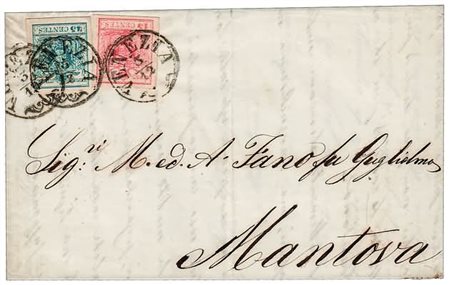 45
CENTES
15
CENTES
VENEZIA
VENEZIA
Sig.ri M. ed A. Fano fu Guglielmo
Mantova